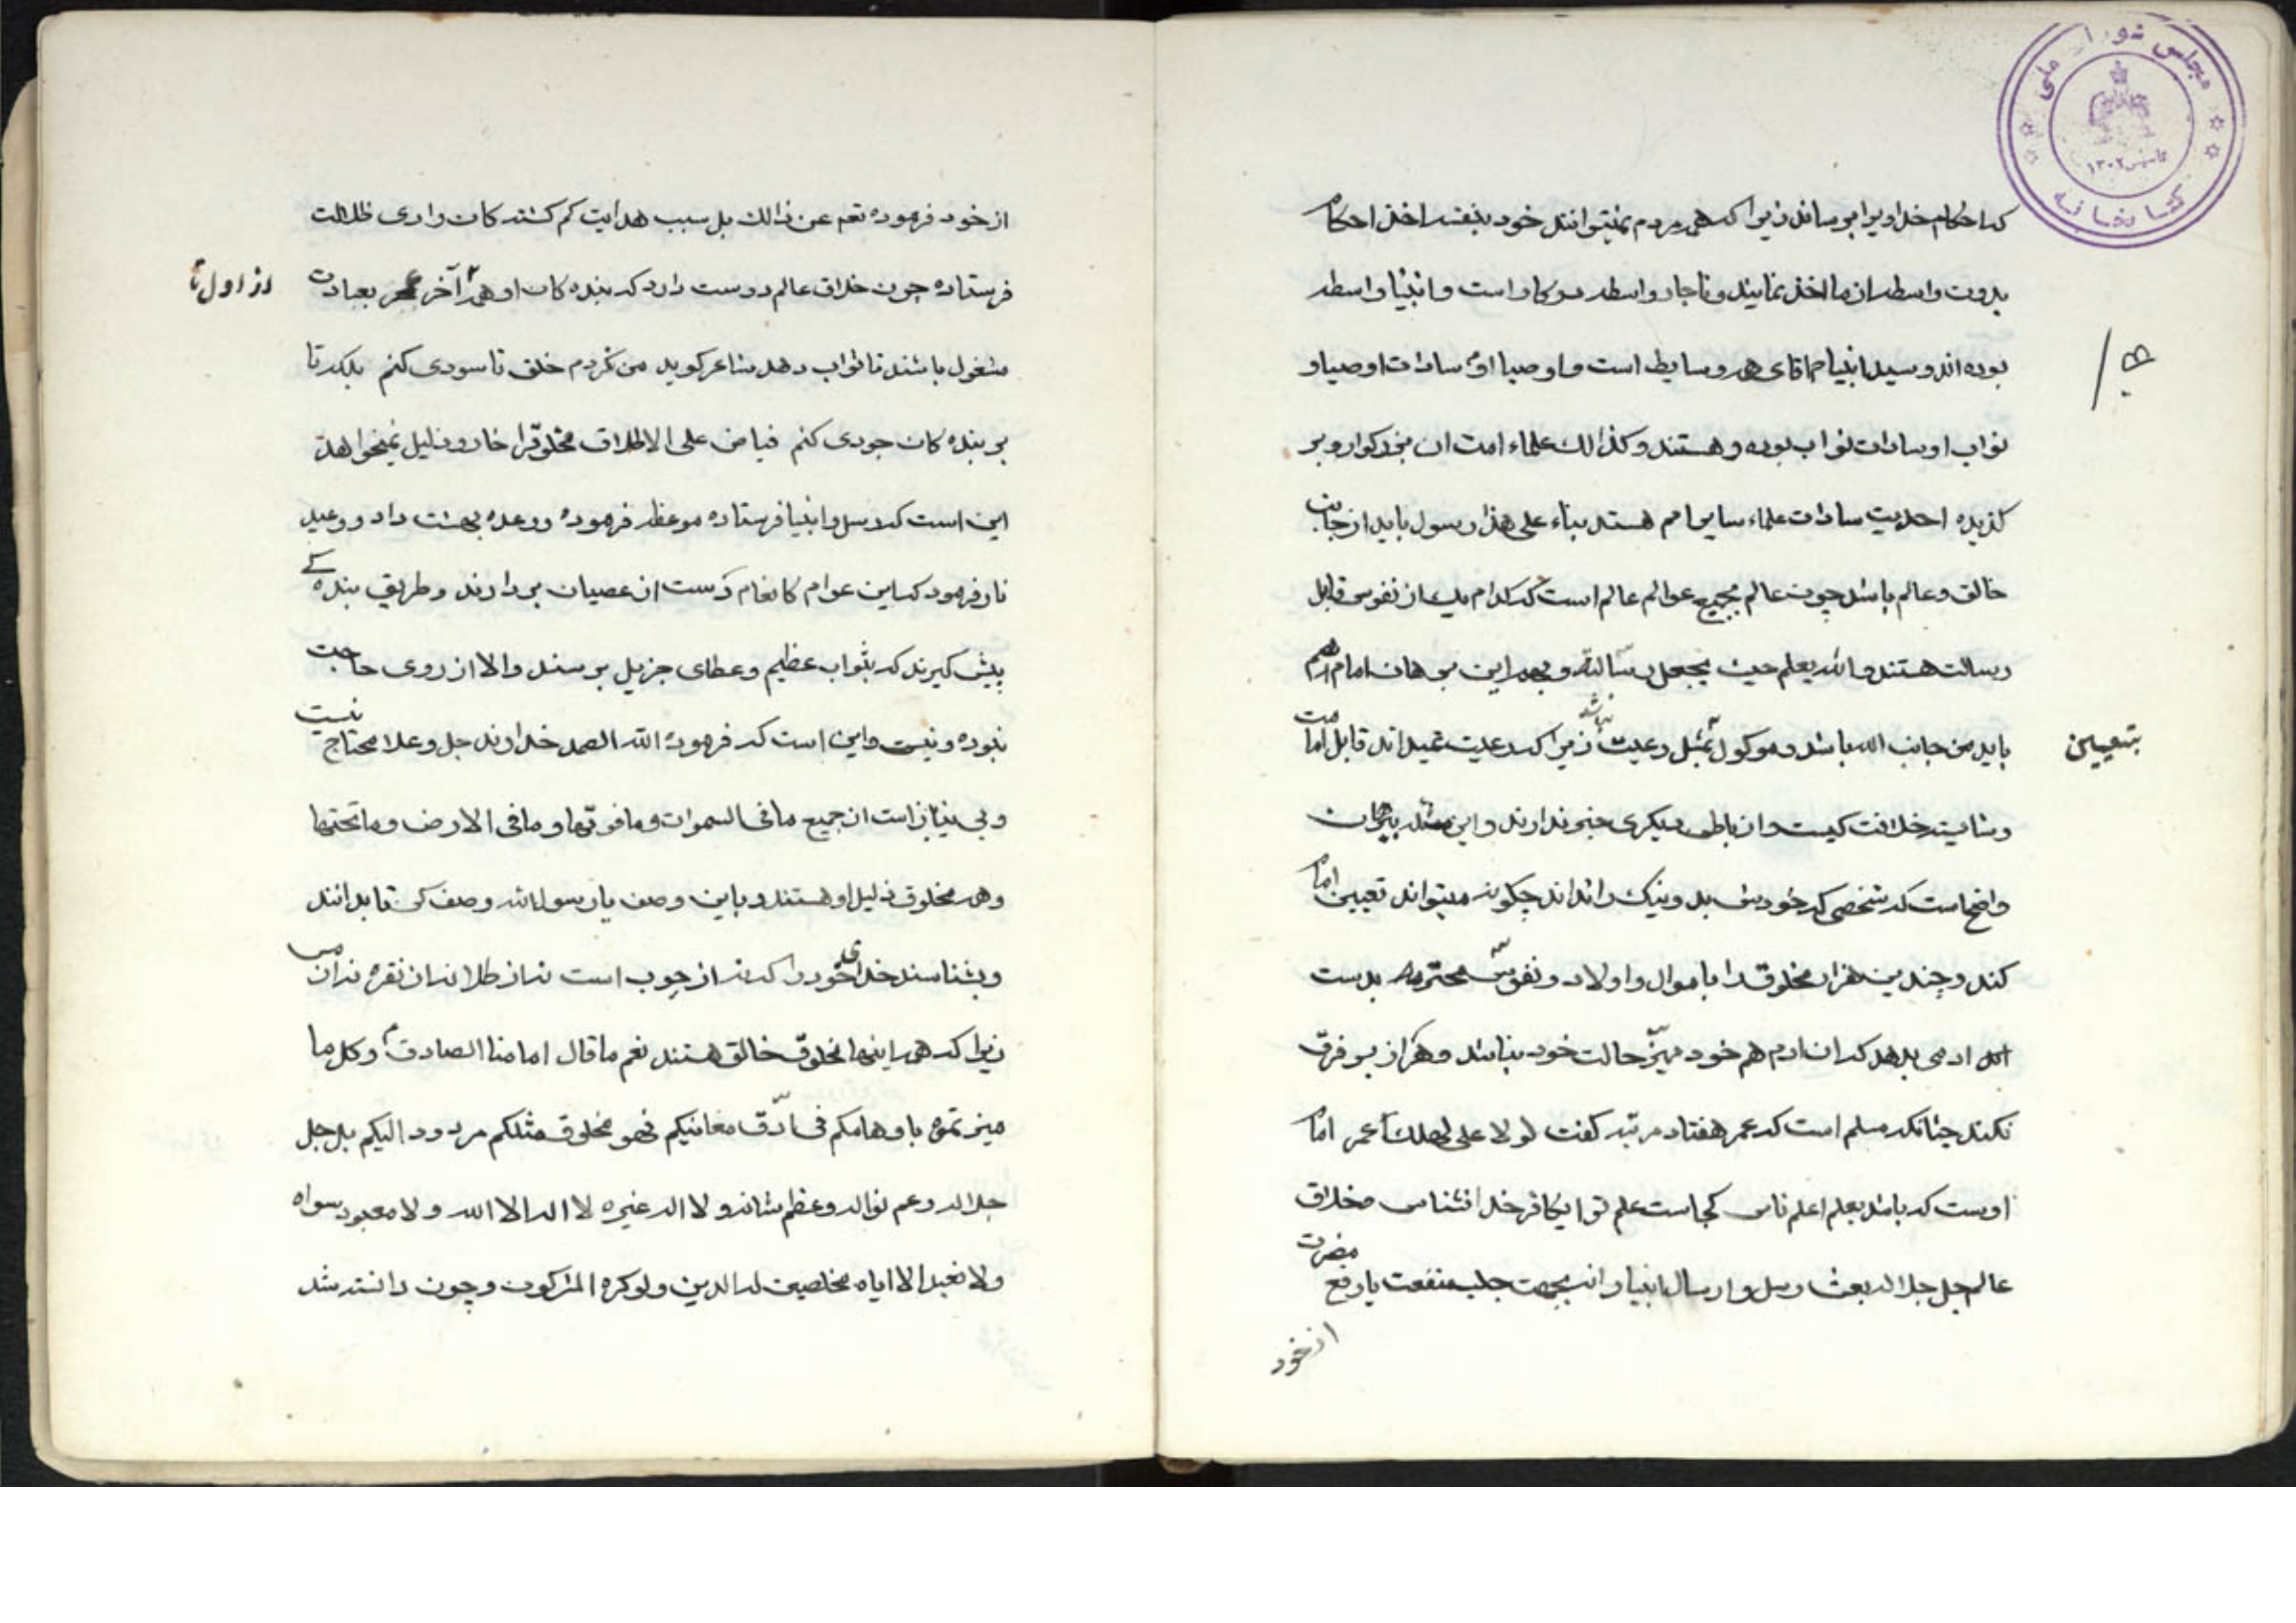 مجلس شورای ملی
تاسیس ۱۳۰۲
کتابخانه
که احکام خداوند را برساند زیرا که همه مردم نمیتوانند خود بنفسه اخذ احکام
بدون واسطه از ما اخذ نمایند و ناچار واسطه در کار است و انبیا واسطه
بوده اند و سید انبیا ما اقای همه وسایط است و اوصیا او سادات اوصیا و
نواب او سادات نواب بوده و هستند و کذالک علماء امت ان بزرکوار و بر
کزیده احدیت سادات علماء سایر امم هستند بناء علی هذا رسول باید از جانب
خالق و عالم باشد چون عالم بجمیع عوالم عالم است که کدام یک از نفوس قابل
رسالت هستند و الله یعلم حیث یجعل رسالته و بهمین برهان امام هم
باید من جانب الله باشد و موکول بمیل رعیت نباشد زیرا که رعیت نمیداند قابل امامت
بتعیین
و شایسته خلافت کیست و از باطن دیکری خبر ندارند و این
واضح است که شخصی که خودش بد و نیک را نداند چکونه میتواند تعیین امام
کند و چندین هزار مخلوق را با موال و اولاد و نفوس محترمه بدست
ادمی بدهد که ان ادم هم خود ممیز حالت خود نباشد و هر از بر فرق
نکند چنانکه مسلم است که عمر هفتاد مرتبه کفت لولا علی لهلک عمر امام
اوست که باشد بعلم اعلم ناس کجاست علم تو ایکافر خدا نشناس و خلاق
عالم جل جلاله بعث رسل و ارسال انبیا را نه بجهت جلب منفعت یا دفع مضرت
از خود
از خود فرموده نعم عن ذالک بل سبب هدایت کم کشته کان وادی ظلالت
فرستاده چون خلاق عالم دوست دارد که بنده کان او همه آخر عمر بعبادت
از اول تا
مشغول باشند تا ثواب دهد شاعر کوید من نکردم خلق تا سودی کنم بلکه تا
بر بنده کان جودی کنم فیاض علی الاطلاق مخلوق را خار و ذلیل نمیخواهد
این است که رسل و انبیا فرستاده موعظه فرموده و وعده بهشت داد و وعید
نار فرمود که این عوام کانعام دست از عصیان بردارند و طریق بنده کی
پیش کیرند که بثواب عظیم و عطای جزیل برسند و الا از روی حاجت
نبوده و نیست و این است که فرموده الله الصمد خداوند جل و علا محتاج نیست
و بی نیاز است از جمیع ما فی السموات و ما فوقها و ما فی الارض و ما تحتها
و همه مخلوق ذلیل او هستند و باین وصف یا رسول الله وصف کن تا بدانند
و بشناسند خدای خود را که نه از چوب است نه از طلا نه از نقره نه از مس
زیرا که همه اینها مخلوق خالق هستند نعم ما قال امامنا الصادق ع و کل ما
میزتموه باوهامکم فی ادق معانیکم فهو مخلوق مثلکم مردود الیکم بل جل
جلاله و عم نواله و عظم شانه و لا اله غیره لا اله الا الله و لا معبود سواه
و لا نعبد الا ایاه مخلصین له الدین و لو کره المشرکون و چون دانسته شد